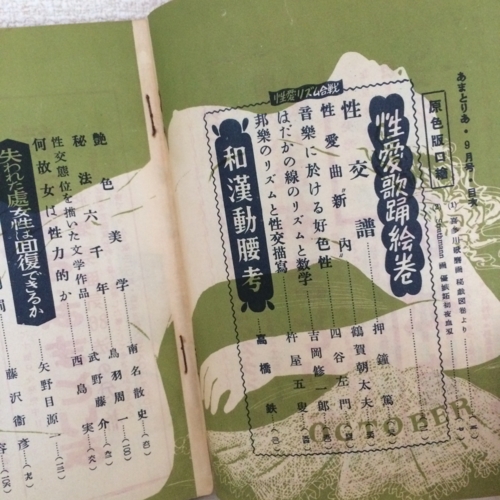 あまとりあ・9月号・目次
原色版口絵
性愛歌踊絵巻
性愛リズム合戦
性交譜 押鐘篤
性愛曲"新内" 鶴賀朝太夫
音樂に於ける好色性 四谷左門
はだかの線のリズムと数学 吉岡修一郎
邦樂のリズムと性交描写 杵屋五叟
和漢動腰考 高橋鉄
OCTOBER
艶色美学 南名散史
秘法六千年 鳥羽周一
性交態位を描いた文学作品 武野藤介
何故女は性力的か 西島実
矢野目源一
失われた處女性は回復できるか
藤沢衛彦